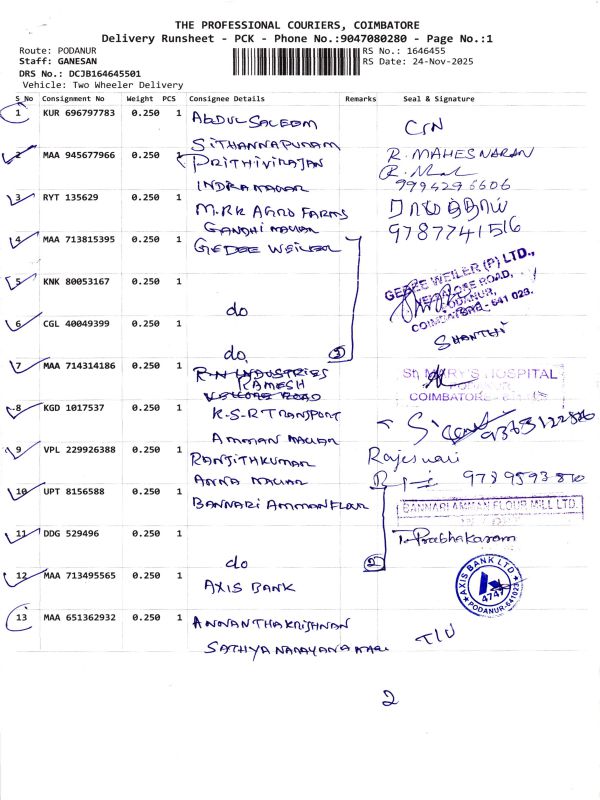 THE PROFESSIONAL COURIERS, COIMBATORE
Delivery Runsheet - PCK - Phone No.:9047080280 - Page No.:1
Route: PODANUR RS No.: 1646455
Staff: GANESAN RS Date: 24-Nov-2025
DRS No.: DCJB164645501
Vehicle: Two Wheeler Delivery
S_No Consignment No Weight PCS Consignee Details Remarks Seal & Signature
1 KUR 696797783 0.250 1 ABDUL SALEEM
SITHANNAPURAM
2 MAA 945677966 0.250 1 PRITHIVIRAJAN R. MAHESWARAN
INDRA NAGAR 9994296606
3 RYT 135629 0.250 1 M.RK AGRO FARMS
GANDHI NAGAR 9787741516
4 MAA 713815395 0.250 1 GEDEE WEILER
GEDEE WEILER (P) LTD.,
5 KNK 80053167 0.250 1
do
PODANUR,
COIMBATORE - 641 023.
6 CGL 40049399 0.250 1
do 3 SHANTHI
7 MAA 714314186 0.250 1 R.N INDUSTRIES
RAMESH
VELLORE ROAD
St. MARY'S HOSPITAL
PODANUR,
COIMBATORE
8 KGD 1017537 0.250 1 K.S.R TRANSPORT
AMMAN NAGAR
9 VPL 229926388 0.250 1 RANJITHKUMAR Rajeswari
ANNA NAGAR
10 UPT 8156588 0.250 1 BANNARI AMMAN FLOUR
BANNARI AMMAN FLOUR MILL LTD.
11 DDG 529496 0.250 1 T. Prabhakaran
do 2
12 MAA 713495565 0.250 1 AXIS BANK
AXIS BANK LTD
4747
PODANUR-641023
13 MAA 651362932 0.250 1 ANNANTHAKRISHNAN
SATHYA NARAYANA
2